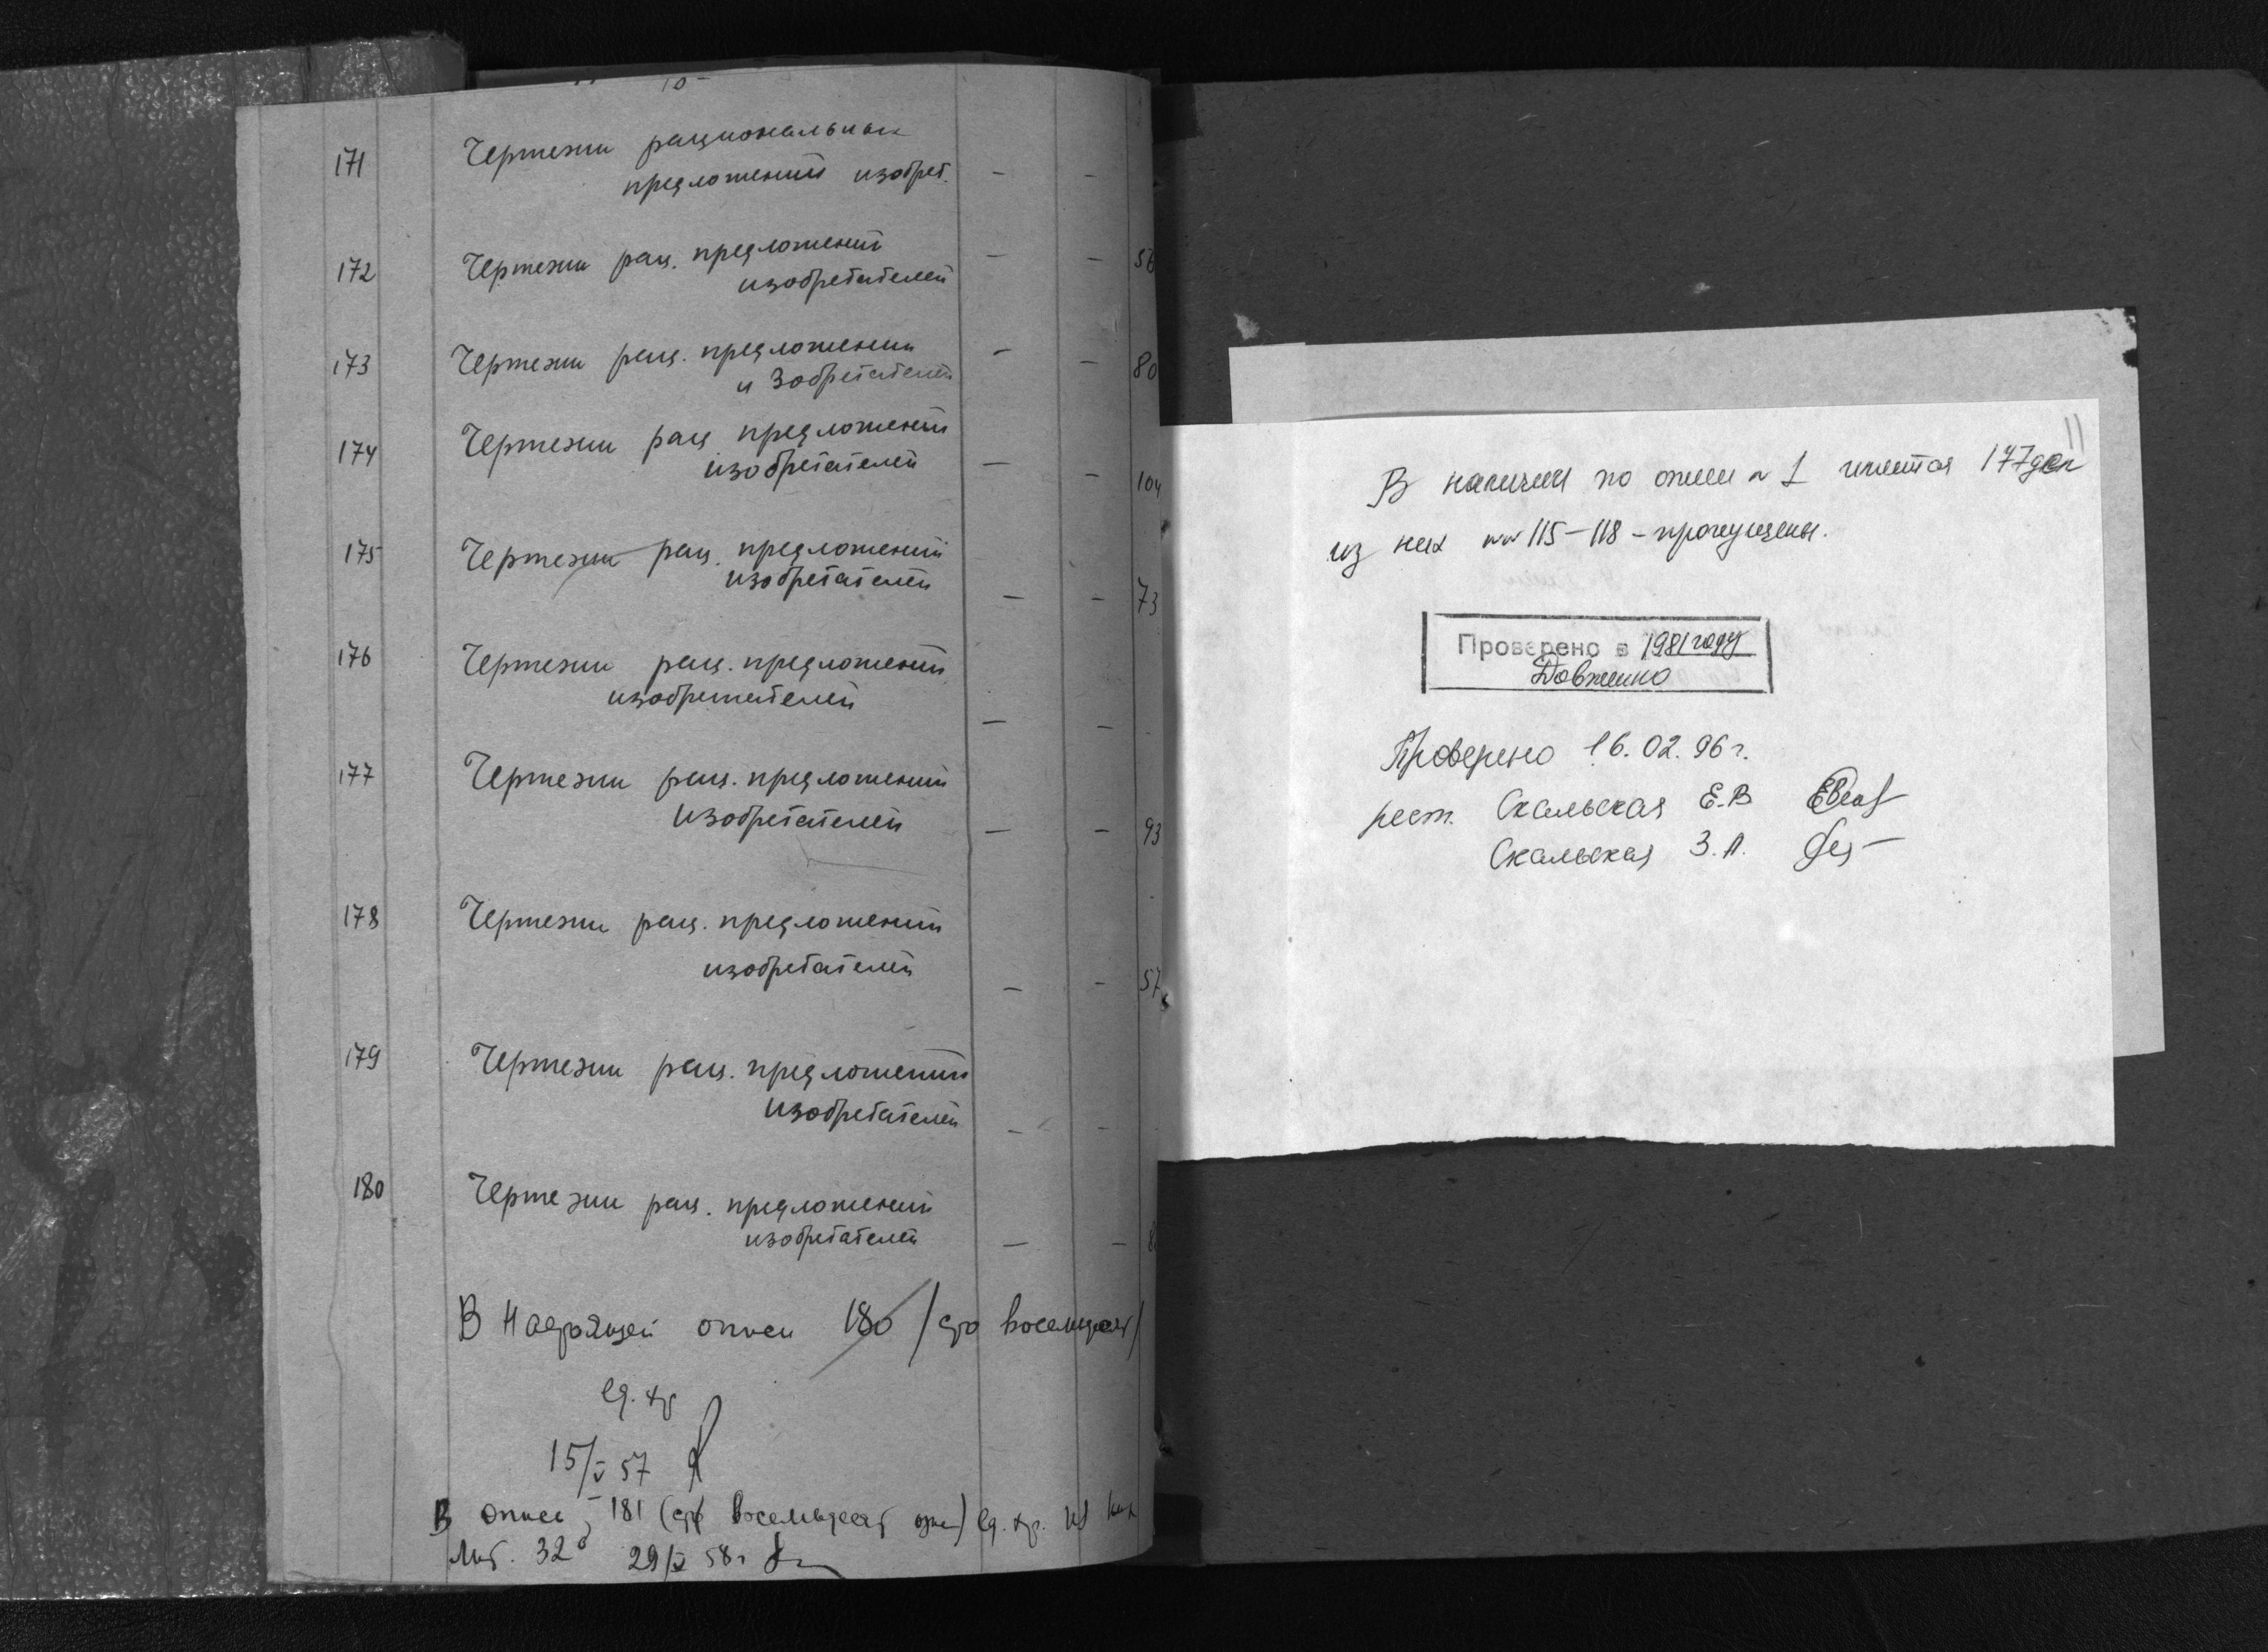 10
171 Чертежи рациональных
предложений изобрет. - -
172 Чертежи рац. предложений - - 56
изобретателей
173 Чертежи рац. предложений - - 80
изобретателей
174 Чертежи рац предложений
изобретателей - - 104
175 Чертежи рац. предложений
изобретателей - - 73
176 Чертежи рац. предложений
изобретателей - -
177 Чертежи рац. предложений
изобретателей - - 93
178 Чертежи рац. предложений
изобретателей - - 57
179 Чертежи рац. предложений
изобретателей - -
180 Чертежи рац. предложений
изобретателей - -
В настоящей описи 180 /сто восемьдесят/
ед. хр
15/V 57
В описи 181 (сто восемьдесят один) ед. хр. из них
Лит. 32б 29/IX 58г
11
В наличии по описи № 1 имеется 177 дел
из них №№ 115-118 - пропущены.
Проверено в 1981 году
Довженко
Проверено 16.02.96 г.
рест. Скальская Е.В
Скальская З.П.